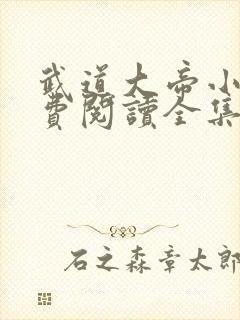 武道大帝小
費閱讀全集
石之森章太郎